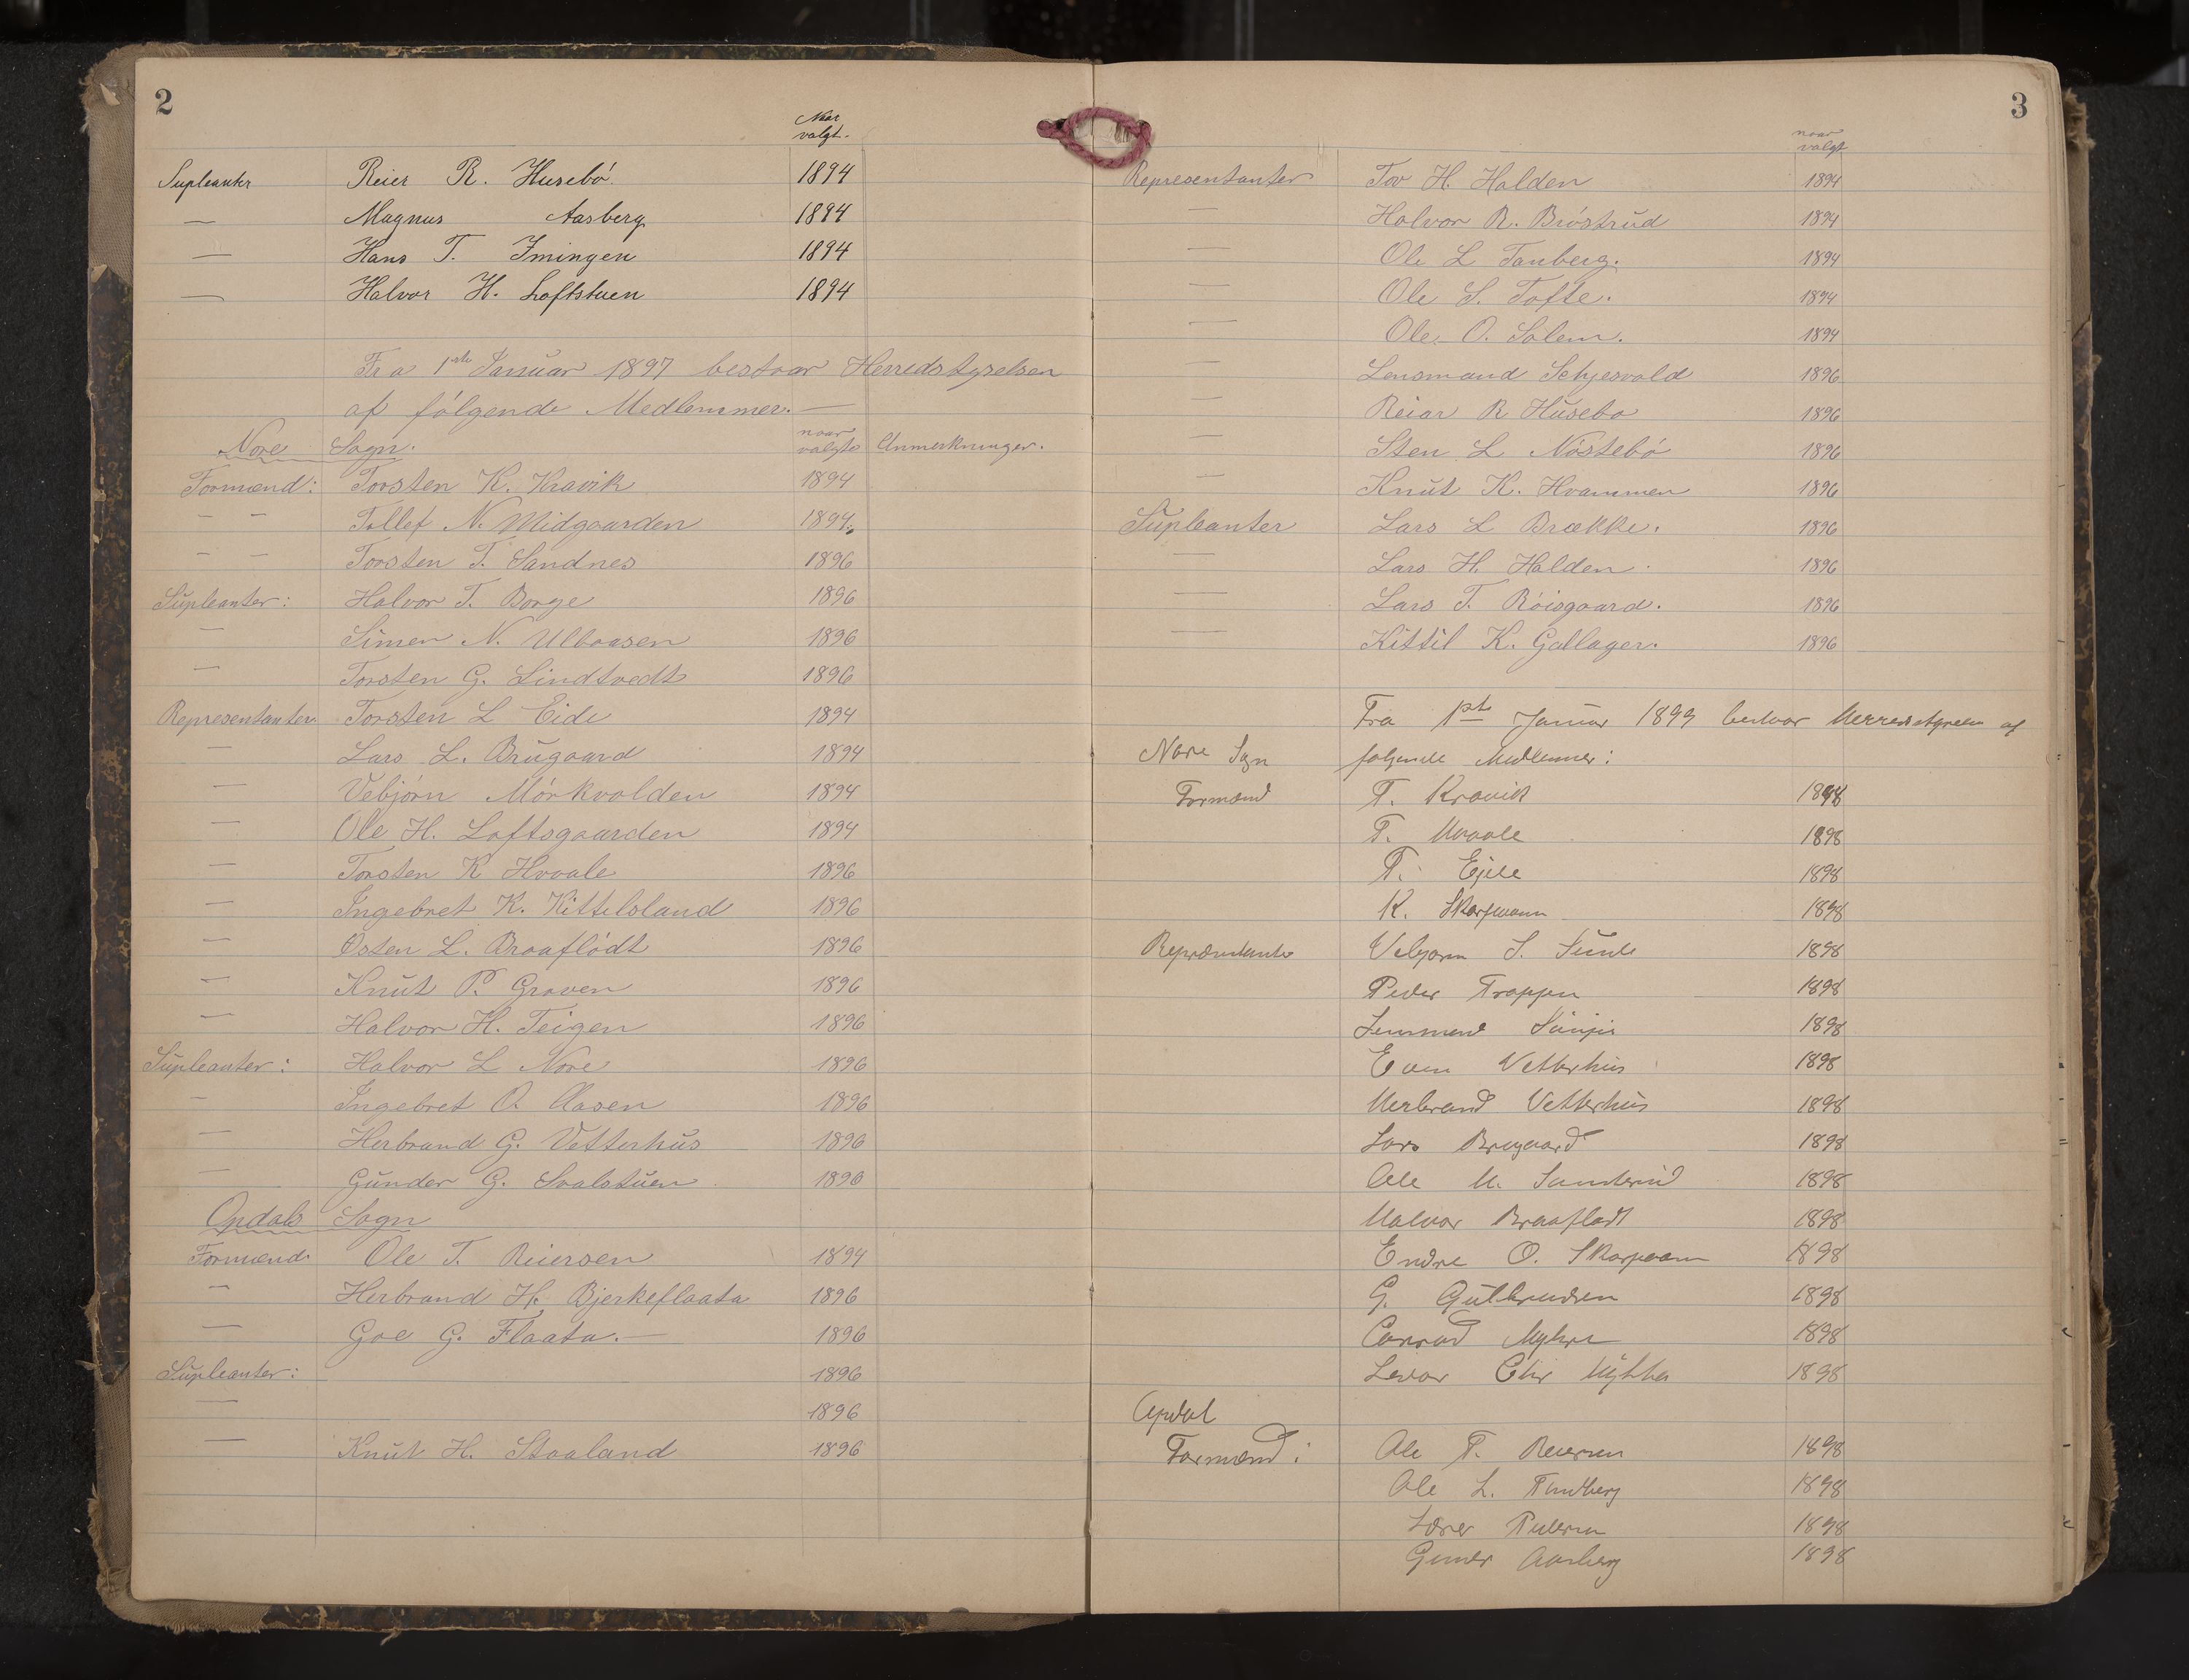 2
Naar
valgt.
Supleanter Reier R. Husebö. 1894
— Magnus Aasberg 1894
— Hans T. Imingen 1894
— Halvor H. Loftstuen 1894
Fra 1ste Januar 1897 bestaar Herredstyrelsen
af følgende Medlemmer. —
Nore Sogn. naar valgte Anmerkninger.
Formænd: Torsten K. Kravik 1894
— — Tollef N. Midgaarden 1894.
— — Torsten T. Sandnes 1896
Supleanter: Halvor T. Borge 1896
— Simen N. Ulbaasen 1896
— Torsten G. Lindtvedt 1896
Representanter Torsten L Eide 1894
— Lars L. Brugaard 1894
— Vebjörn Mörkvolden 1894
— Ole H. Loftsgaarden 1894
— Torsten K Hvaale 1896
— Ingebret K. Kittilsland 1896
— Østen L. Braaflödt 1896
— Knut P. Graven 1896
— Halvor H. Teigen 1896
Supleanter: Halvor L Nore 1896
— Ingebret O. Aasen 1896
— Herbrand G. Vetterhus 1896
— Gunder G. Svalstuen. 1896
Opdals Sogn
Formænd Ole T. Reiersen 1894
— Herbrand H. Bjerkeflaata 1896
— Goe G. Flaata. — 1896
Supleanter: 1896
— 1896
— Knut H. Staaland 1896
3
naar
valgt
Representanter Tov H. Halden 1894
— Halvor R. Bröstrud 1894
— Ole L Tanberg. 1894
— Ole S. Tofte. 1894
— Ole O. Solem. 1894
— Lensmand Schjesvold 1896
— Reiar R Husebo 1896
— Sten L Nöstebö 1896
— Knut K. Hvammen 1896
Supleanter Lars L Brække. 1896
— Lars H. Halden. 1896
— Lars T. Röisgaard. 1896
— Kittil K. Gallager. 1896
Fra 1ste Januar 1899 bestaar Herredstyrelsen af
Nore Sogn følgende Medlemmer:
Formænd T. Kravik 1898
T. Hvaale 1898
T. Ejde 1898
K. Skarpmoen 1898
Repræsentanter Vebjørn S. 1898
Peder Trappen 1898
Lensmand 1898
Even Vetterhus 1898
Herbrand Vetterhus 1898
Lars Brugaard 1898
Ole H. 1898
Halvor Braaflødt 1898
Endre O. Skarpmoen 1898
G. Gulbrandsen 1898
Conrad Myhre 1898
Levor Chr 1898
Opdal
Formænd: Ole T. Reiersen 1898
Ole L. Tandberg 1898
Lærer 1898
Gunder Aasberg 1898